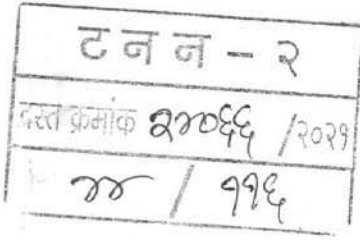 ट न न - २
दस्त क्रमांक २४०६६ /२०२१
४४ / ११६